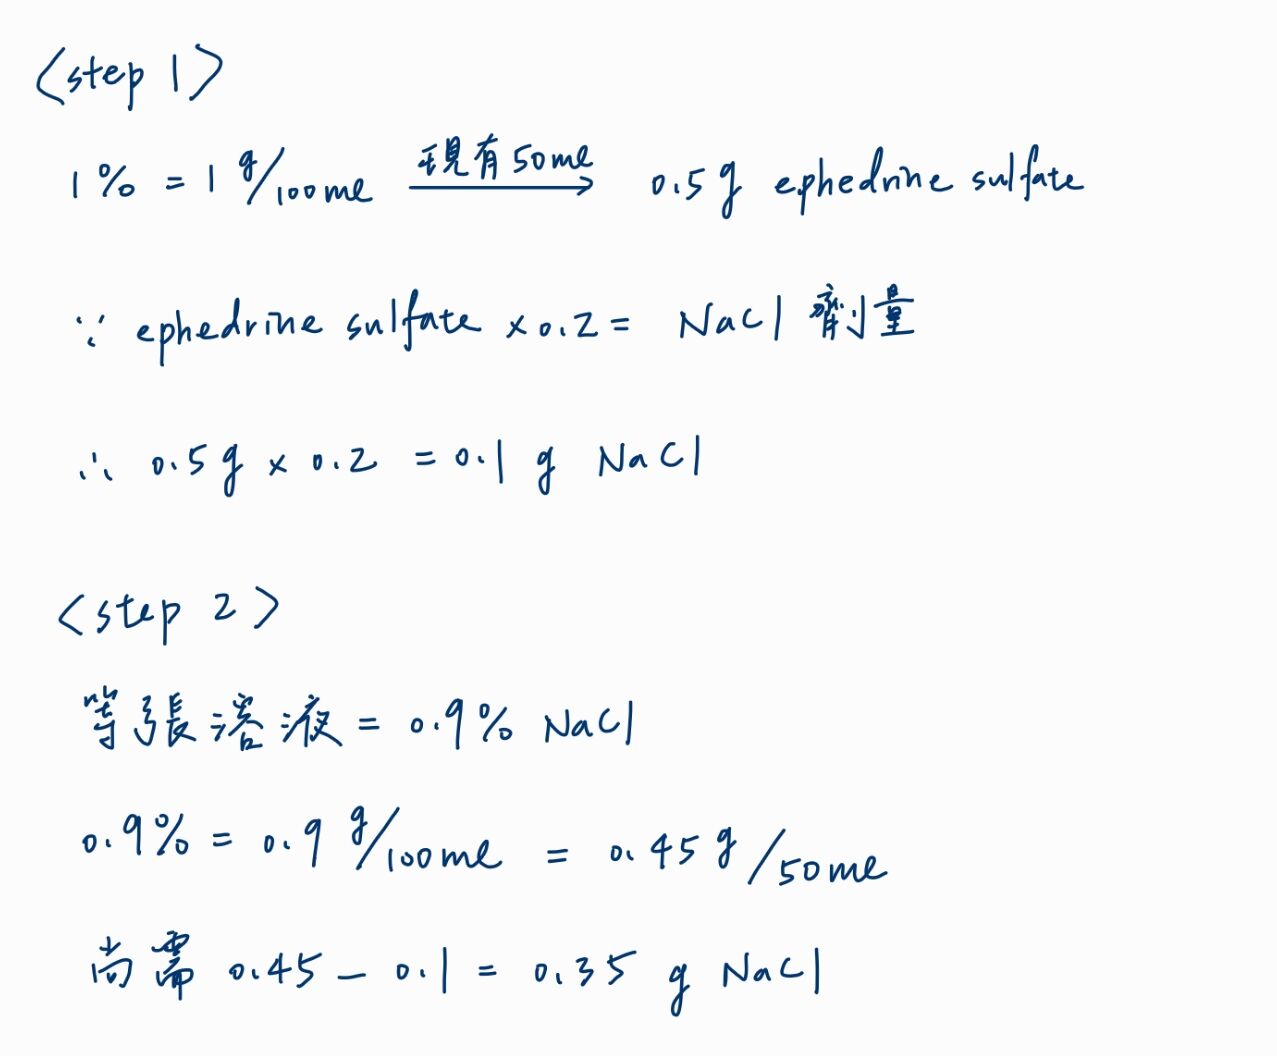 <step 1>
1% = 1 g/100ml 現有50ml → 0.5g ephedrine sulfate
∵ ephedrine sulfate × 0.2 = NaCl 劑量
∴ 0.5g × 0.2 = 0.1 g NaCl
<step 2>
等張溶液 = 0.9% NaCl
0.9% = 0.9 g/100ml = 0.45 g/50ml
尚需 0.45 - 0.1 = 0.35 g NaCl